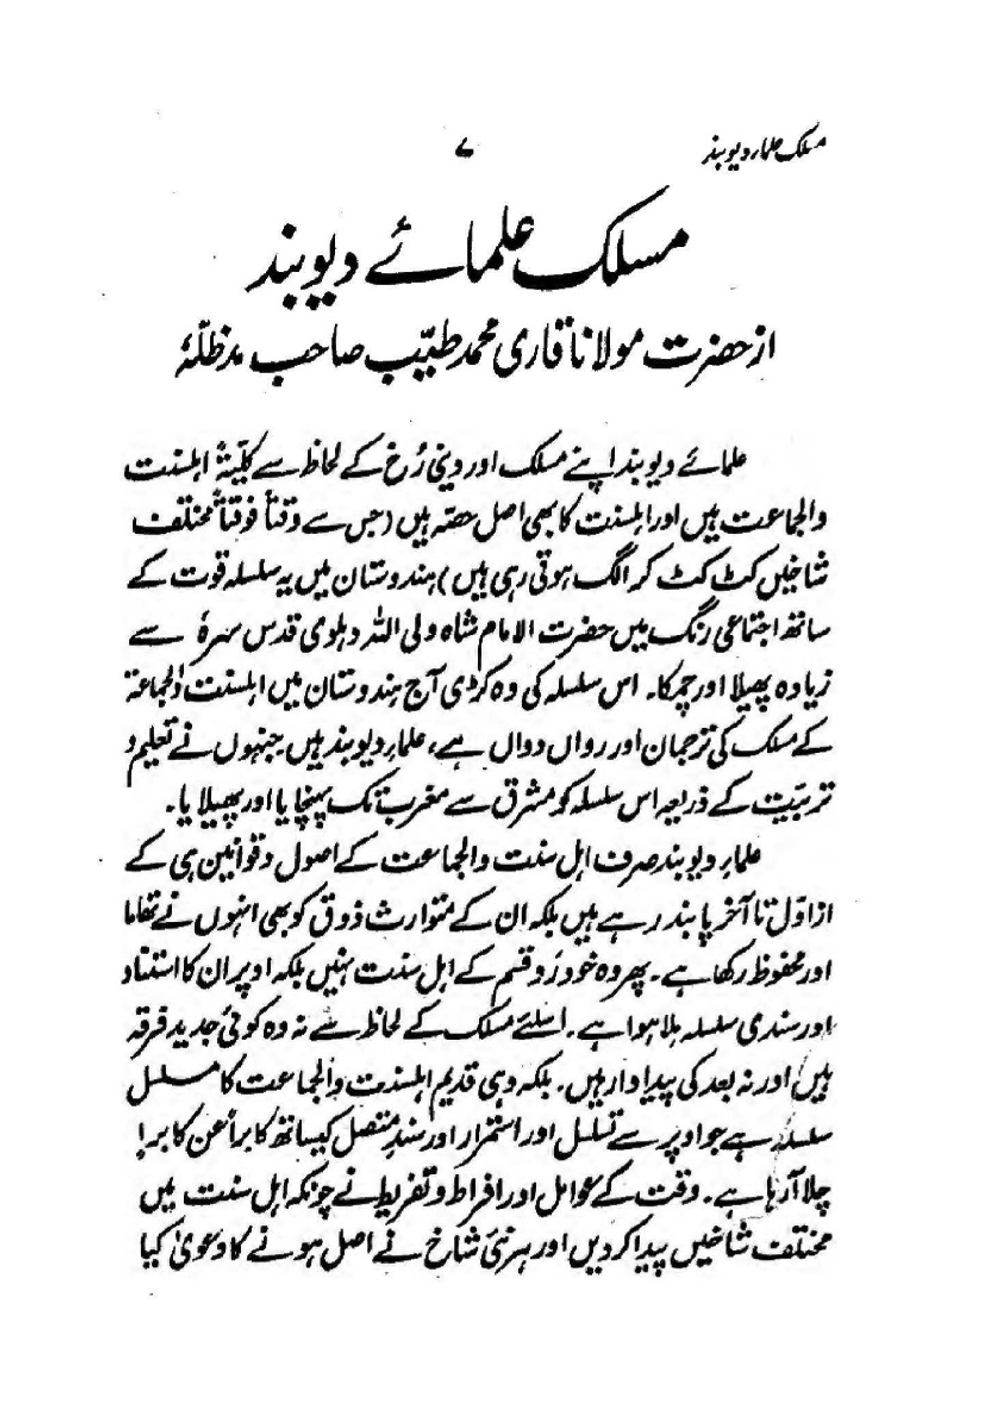 مسلک علماء دیوبند
۷
مسلک علمائے دیوبند
از حضرت مولانا قاری محمد طیّب صاحب مدظلہٗ
علمائے دیوبند اپنے مسلک اور دینی رُخ کے لحاظ سے کلیّۃً اہلسنت
والجماعت ہیں اور اہلسنت کا بھی اصل حصّہ ہیں (جس سے وقتاً فوقتاً مختلف
شاخیں کٹ کٹ کر الگ ہوتی رہی ہیں) ہندوستان میں یہ سلسلہ قوت کے
ساتھ اجتماعی رنگ میں حضرت الامام شاہ ولی اللہ دہلوی قدس سرہٗ سے
زیادہ پھیلا اور چمکا۔ اس سلسلہ کی وہ کڑی آج ہندوستان میں اہلسنت والجماعۃ
کے مسلک کی ترجمان اور رواں دواں ہے، علماءِ دیوبند ہیں جنہوں نے تعلیم و
تربیّت کے ذریعہ اس سلسلہ کو مشرق سے مغرب تک پہنچایا اور پھیلایا۔
علماءِ دیوبند صرف اہل سنت والجماعت کے اصول و قوانین ہی کے
از اوّل تا آخر پابند رہے ہیں بلکہ ان کے متوارث ذوق کو بھی انہوں نے تھاما
اور محفوظ رکھا ہے۔ پھر وہ خود رَو قسم کے اہل سنت نہیں بلکہ اوپر ان کا استناد
اور سندی سلسلہ ملا ہوا ہے۔ اسلئے مسلک کے لحاظ سے نہ وہ کوئی جدید فرقہ
ہیں اور نہ بعد کی پیداوار ہیں۔ بلکہ وہی قدیم اہلسنت والجماعت کا مسلسل
سلسلہ ہے جو اوپر سے تسلسل اور استمرار اور سندِ متصل کیساتھ کابراً عن کابر
چلا آرہا ہے۔ وقت کے عوامل اور افراط و تفریط نے چونکہ اہل سنت میں
مختلف شاخیں پیدا کردیں اور ہر نئی شاخ نے اصل ہونے کا دعویٰ کیا